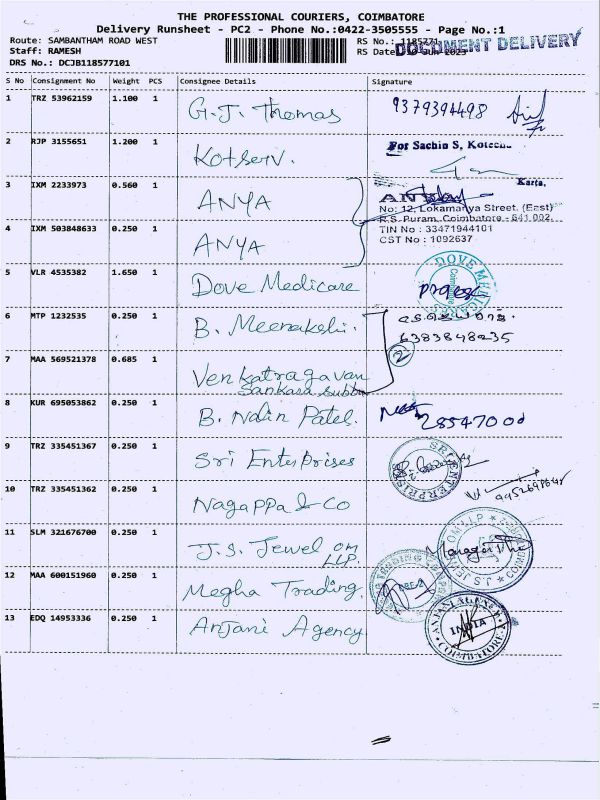 THE PROFESSIONAL COURIERS, COIMBATORE
Delivery Runsheet - PC2 - Phone No.:0422-3505555 - Page No.:1
Route: SAMBANTHAM ROAD WEST
RS No.: 118577
DOCUMENT DELIVERY
Staff: RAMESH
RS Date:
DRS No.: DCJB118577101
S No Consignment No Weight PCS Consignee Details Signature
1 TRZ 53962159 1.100 1 G.J. Thomas 9379394498
2 RJP 3155651 1.200 1 Kotserv. For Sachin S, Kotecha
Karta.
3 IXM 2233973 0.560 1 ANYA
No: 12, Lokamanya Street, (East)
R.S. Puram, Coimbatore - 641 002.
4 IXM 503848633 0.250 1 ANYA TIN No : 33471944101
CST No : 1092637
5 VLR 4535382 1.650 1 Dove Medicare DOVE MEDICARES
6 MTP 1232535 0.250 1 B. Meenakshi.
6383848235
2
7 MAA 569521378 0.685 1 Venkatragavan
Sankara Subbu
8 KUR 695053862 0.250 1 B. Nalin Patel.
28547000
9 TRZ 335451367 0.250 1 Sri Enterprises SRI ENTERPRISES
10 TRZ 335451362 0.250 1 Nagappa & Co
11 SLM 321676700 0.250 1 J.S. Jewel om
LLP.
Manager
12 MAA 600151960 0.250 1 Megha Trading.
13 EDQ 14953336 0.250 1 Anjani Agency ANJANI AGENCY
INDIA
COIMBATORE